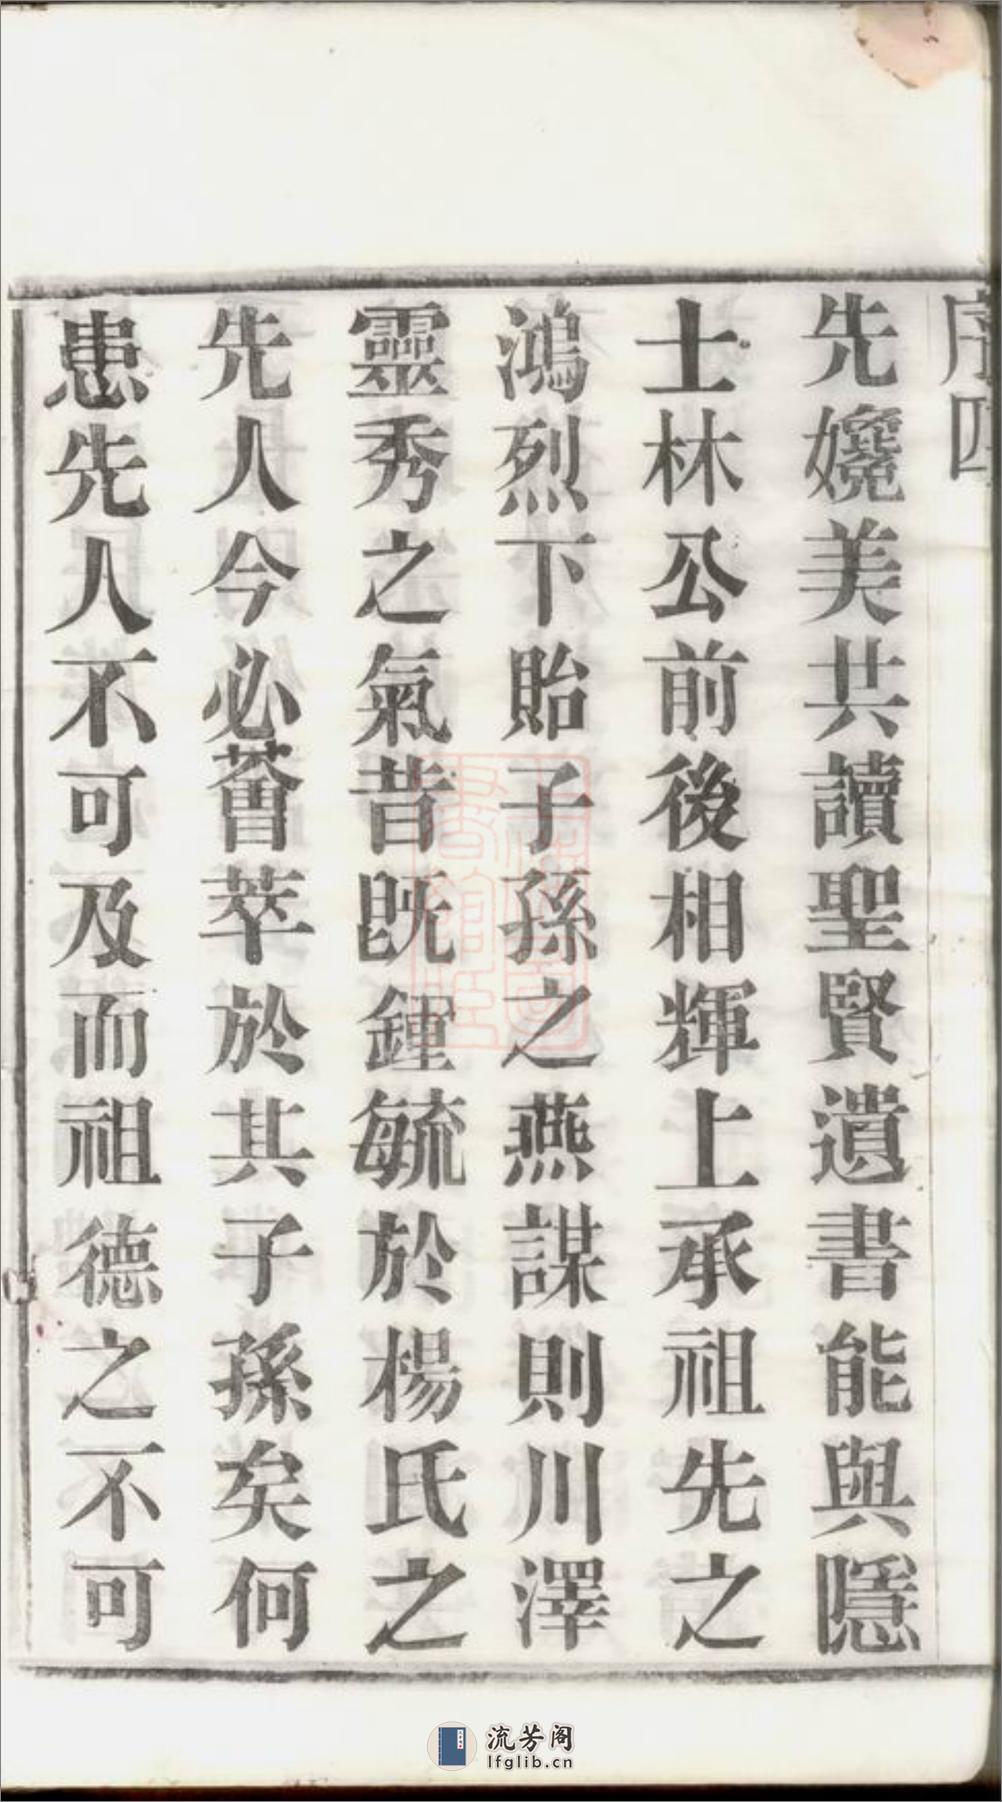 序四
先孏美共讀聖賢遺書能與隱
士林公前後相輝上承祖先之
鴻烈下貽子孫之燕謀則川澤
靈秀之氣昔既鍾毓於楊氏之
先人今必薈萃於其子孫矣何
患先人不可及而祖德之不可
流芳阁
lfglib.cn